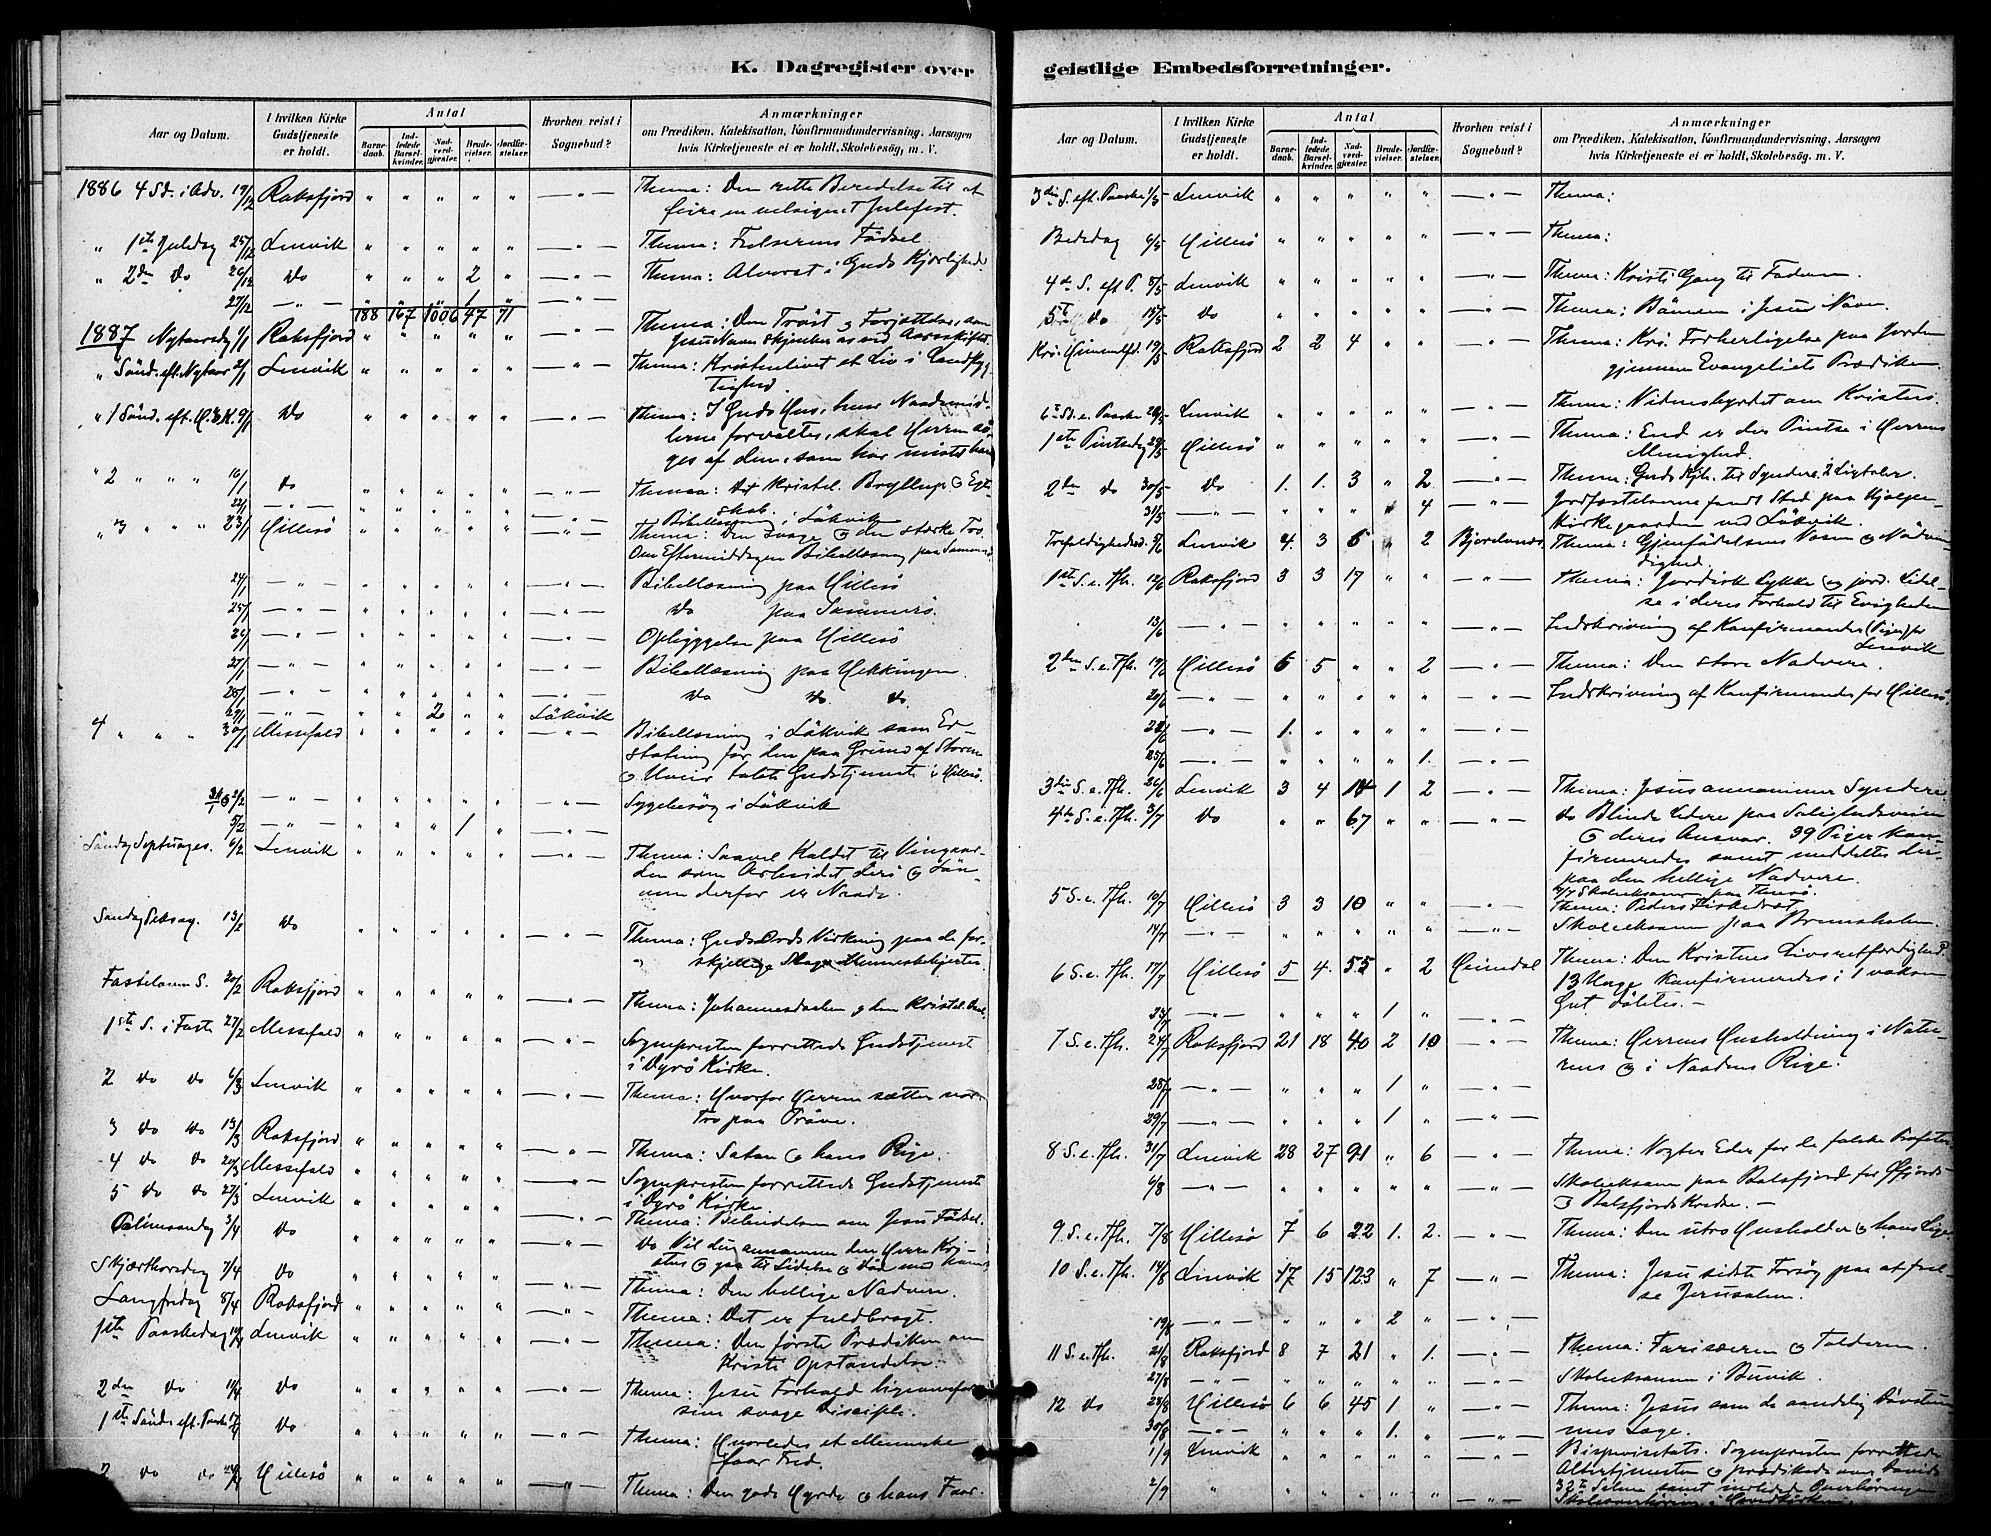 K. Dagregister over
Aar og Datum.
I hvilken Kirke Gudstjeneste er holdt.
Antal
Barnedaab.
Indledede Barselkvinder.
Nadverdgjester.
Brudevielser.
Jordfæstelser.
Hvorhen reist i Sognebud?
Anmærkninger
om Prædiken, Katekisation, Konfirmandundervisning, Aarsagen
hvis Kirketjeneste ei er holdt, Skolebesøg, m. V.
1886 4 Sd. i Adv. 19/12 Raksfjord " " " " " — " — Thema: Den rette Beredelse til at
feire en velsignet Julefest.
" 1ste Juledag 25/12 Lenvik " " " " " — " — Thema: Frelserens Fødsel.
" 2den Do 26/12 Do " " " 2 " — " — Thema: Alvoret i Guds Kjærlighed.
27/12 — " — " " " 1 " — " —
188 167 1006 47 71
1887 Nytaarsdag 1/1 Raksfjord " " " " " — " — Thema: Den Trøst og Forjættelse, som
Jesu Navn skjenker os ved Aarsskiftet.
" Sönd. eft. Nytaar 2/1 Lenvik " " " " " — " — Thema: Kristenlivet et Liv i Landflyg-
tighed.
" 1 Sönd. eft. H. 3 K. 9/1 Do " " " " " — " — Thema: I Guds Hus, hvor Naademid-
lerne forvaltes, skal Herren sö-
ges af dem, som har mistet ham
" 2 " " " 16/1 Do " " " " " — " — Thema: Det kristel. Bryllup og Egte-
skab.
22/1 — " — " " " " " — " — Bibellæsning i Løkvik
" 3 " " " 23/1 Hillesö " " " " " — " — Thema: Den svage og den stærke Tro.
Om Eftermiddagen Bibellæsning paa Sommerö.
24/1 — " — " " " " " — " — Bibellæsning paa Hillesö
25/1 — " — " " " " " — " — Do paa Sommerö.
26/1 — " — " " " " " — " — Opbyggelse paa Hillesö
27/1 — " — " " " " " — " — Bibellæsning paa Hekkingen.
28/1 — " — " " " " " — " — Do Do Do
29/1 — " — " " 2 " " Løkvik
4 " " " 30/1 Messefald " " " " " — " — Bibellæsning i Løkvik som Er-
statning for den paa Grund af Storm
og Uveir talte Gudstjeneste i Hillesö.
31/1 og 2/2 — " — " " " " " — " — Sygebesög i Løkvik
5/2 — " — " " " 1 " — " —
Söndag Septuages. 6/2 Lenvik " " " " " — " — Thema: Saavel Kaldet til Vingaar-
den som Arbeidet deri og Løn-
nen derfor er Naade.
Söndag Seksag. 13/2 Do " " " " " — " — Thema: Guds Ords Virkning paa de for-
skjellige Slags Menneskehjerter.
Fastelavns S. 20/2 Raksfjord " " " " " — " — Thema: Johannesdaaben og den kristel. Daab.
1ste S. i Faste 27/2 Messefald " " " " " — " — Sognepresten forrettede Gudstjeneste
i Dyrö Kirke.
2 Do Do 6/3 Lenvik " " " " " — " — Thema: Hvorfor Herren sætter vor
Tro paa Pröve.
3 Do Do 13/3 Raksfjord " " " " " — " — Thema: Satan og hans Rige.
4 Do Do 20/3 Messefald " " " " " — " — Sognepresten forrettede Gudstjeneste
i Dyrö Kirke
5 Do Do 27/3 Lenvik " " " " " — " — Thema: Bebudelsen om Jesu Fødsel.
Palmesøndag 3/4 Do " " " " " — " — Do Vil du annamme den Herre Kri-
stus og gaa til Lidelse og Död med ham
Skjærthorsdag 7/4 Do " " " " " — " — Thema: Den hellige Nadvere.
Langfredag 8/4 Raksfjord " " " " " — " — Thema: Det er fuldbragt.
1ste Paaskedag 10/4 Lenvik " " " " " — " — Thema: Den første Prædiken om
Kristi Opstandelse.
2den Do 11/4 Do " " " " " — " — Thema: Jesu Forhold ligeoverfor
sine svage Disciple.
1ste Sönd. eft. Paaske 17/4 Do " " " " " — " — Thema: Hvorledes et Menneske
faar Fred.
2 Do Do 24/4 Hillesö " " " " " — " — Thema: Den gode Hyrde og hans Faar.
geistlige Embedsforretninger.
Aar og Datum.
I hvilken Kirke Gudstjeneste er holdt.
Antal
Barnedaab.
Indledede Barselkvinder.
Nadverdgjester.
Brudevielser.
Jordfæstelser.
Hvorhen reist i Sognebud?
Anmærkninger
om Prædiken, Katekisation, Konfirmandundervisning, Aarsagen
hvis Kirketjeneste ei er holdt, Skolebesøg, m. V.
3die S. eft. Paaske 1/5 Lenvik " " " " " — " — Thema:
Bededag 6/5 Hillesö " " " " " — " — Thema:
4de S. eft P. 8/5 Lenvik " " " " " — " — Thema: Kristi Gang til Faderen.
5te Do 15/5 Do " " " " " — " — Thema: Bønnen i Jesu Navn.
Kri. Himmelfd. 19/5 Raksfjord 2 2 4 " " — " — Thema: Kri. Forherligelse paa Jorden
gjennem Evangeliets Prædiken.
6te Sd. e. Paaske 22/5 Lenvik " " " " " — " — Thema: Vidnesbyrdet om Kristus.
1ste Pintsedag 29/5 Hillesö " " " " " " Thema: End er der Pintse i Herrens
Menighed.
2den Do 30/5 Do 1. 1. 3 " 2 — " — Thema: Guds Kjh. til Syndere. 2 Ligtaler.
31/5 — " — " " " " 4 — " — Jordfæstelserne fandt Sted paa Hjælpe-
kirkegaarden ved Løkvik.
Trefoldighedssd. 5/6 Lenvik 4. 3 6 " 2 Bjorelvnes Thema: Gjenfødelsens Væsen og Nødven-
dighed.
1ste S. e. Tfh. 12/6 Raksfjord 3 3 17 " " — " — Thema: Jordisk Lykke og jord. Lidel-
se i deres Forhold til Evigheden
13/6 — " — " " " " " — " — Indskrivning af Konfirmander (Piger) for
Lenvik
2den S. e. Tfh. 19/6 Hillesö 6 5 " " 2 — " — Thema: Den store Nadvere.
20/6 — " — " " " " " — " — Indskrivning af Konfirmander for Hillesö.
22/6 — " — 1. " " " " — " —
25/6 — " — " " " " 1. — " —
3die S. e. Tfh. 26/6 Lenvik 3 4 14 1 2 — " — Thema: Jesus annammer Syndere.
4de S. e. Tfh. 3/7 Do " " 67 " " — " — Do Blinde Ledere paa Salighedsveien
og deres Ansvar. 39 Piger kon-
firmeredes samt meddeltes der-
paa den hellige Nadvere.
Skoleeksamen paa
5 S. e. Tfh. 10/7 Hillesö 3 3 10 " " — " — Thema: Peders Fiskedræt
14/7 — " — " " " " " — " — Skoleeksamen paa Brensholmen.
6 S. e. Tfh. 17/7 Hillesö 5 4. 55 " 2 Heimdal Thema: Den Kristnes Livsretfærdighed.
13 Unge konfirmeredes i 1 voksen
Gut döbtes. —
23/7 — " — " " " 1 " — " —
7 S. e. Tfh. 24/7 Raksfjord 21 18 40 2 10 — " — Thema: Herrens Husholdning i Natu-
rens og i Naadens Rige.
28/7 — " — " " " 1 " — " —
29/7 — " — " " " 1 " — " —
8 S. e. Tfh. 31/7 Lenvik 28 27 91 " 6 — " — Thema: Vogter Eder for de falske Profeter.
4/8 — " — " " " " " — " — Skoleeksamen paa Balsfjord for
og Balsfjords Kredse. —
9. S. e. Tfh. 7/8 Hillesö 7 6 22 1. 2. — " — Thema: Den utro Husholder og hans Lige.
10 S. e. Tfh. 14/8 Lenvik 17 15 123 " 7 — " — Thema: Jesu sidste Forsøg paa at frel-
se Jerusalem.
19/8 — " — " " " 2 " — " —
11 S. e. Tfh. 21/8 Raksfjord 8 7 21 " 1. — " — Thema: Farisæeren og Tolderen.
27/8 — " — " " " " " Skoleeksamen i Buvik.
12 Do 28/8 Hillesö 6 6 45 1 " — " — Thema: Jesus som de aandelig Døvstum-
mes Læge.
30/8 — " — " " " 1. " — " —
1/9 Lenvik " " " " " — " — Bispevisitats. Sognepresten forrettede
Altertjenesten og prædikede over Davids
2/9 " " " " " " — " — 32te Salme samt indledede Overhøringen